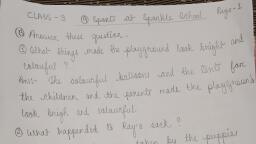 CLASS-3 ④ Sports at Sparkle School Page-1
Ⓑ Answer these question.
① What things made the playground look bright and
colourful ?
Ans- The colourful balloons and the tent for
the children and the parents made the playground
look brigh and colourful.
② What happended to Ray's sack ?
taken by the puppies